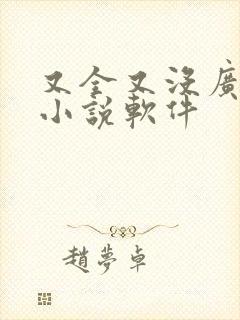 又全又沒廣
小說軟件
趙夢卓